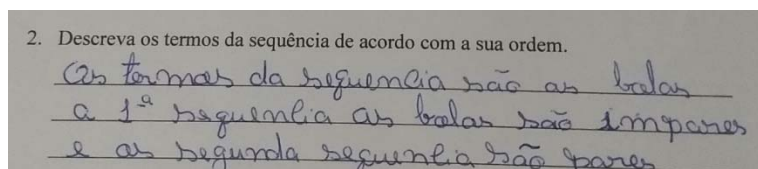 2. Descreva os termos da sequência de acordo com a sua ordem.
as termas da sequencia são as bolas
a 1ª sequencia as bolas são impares
e as segunda sequencia são pares